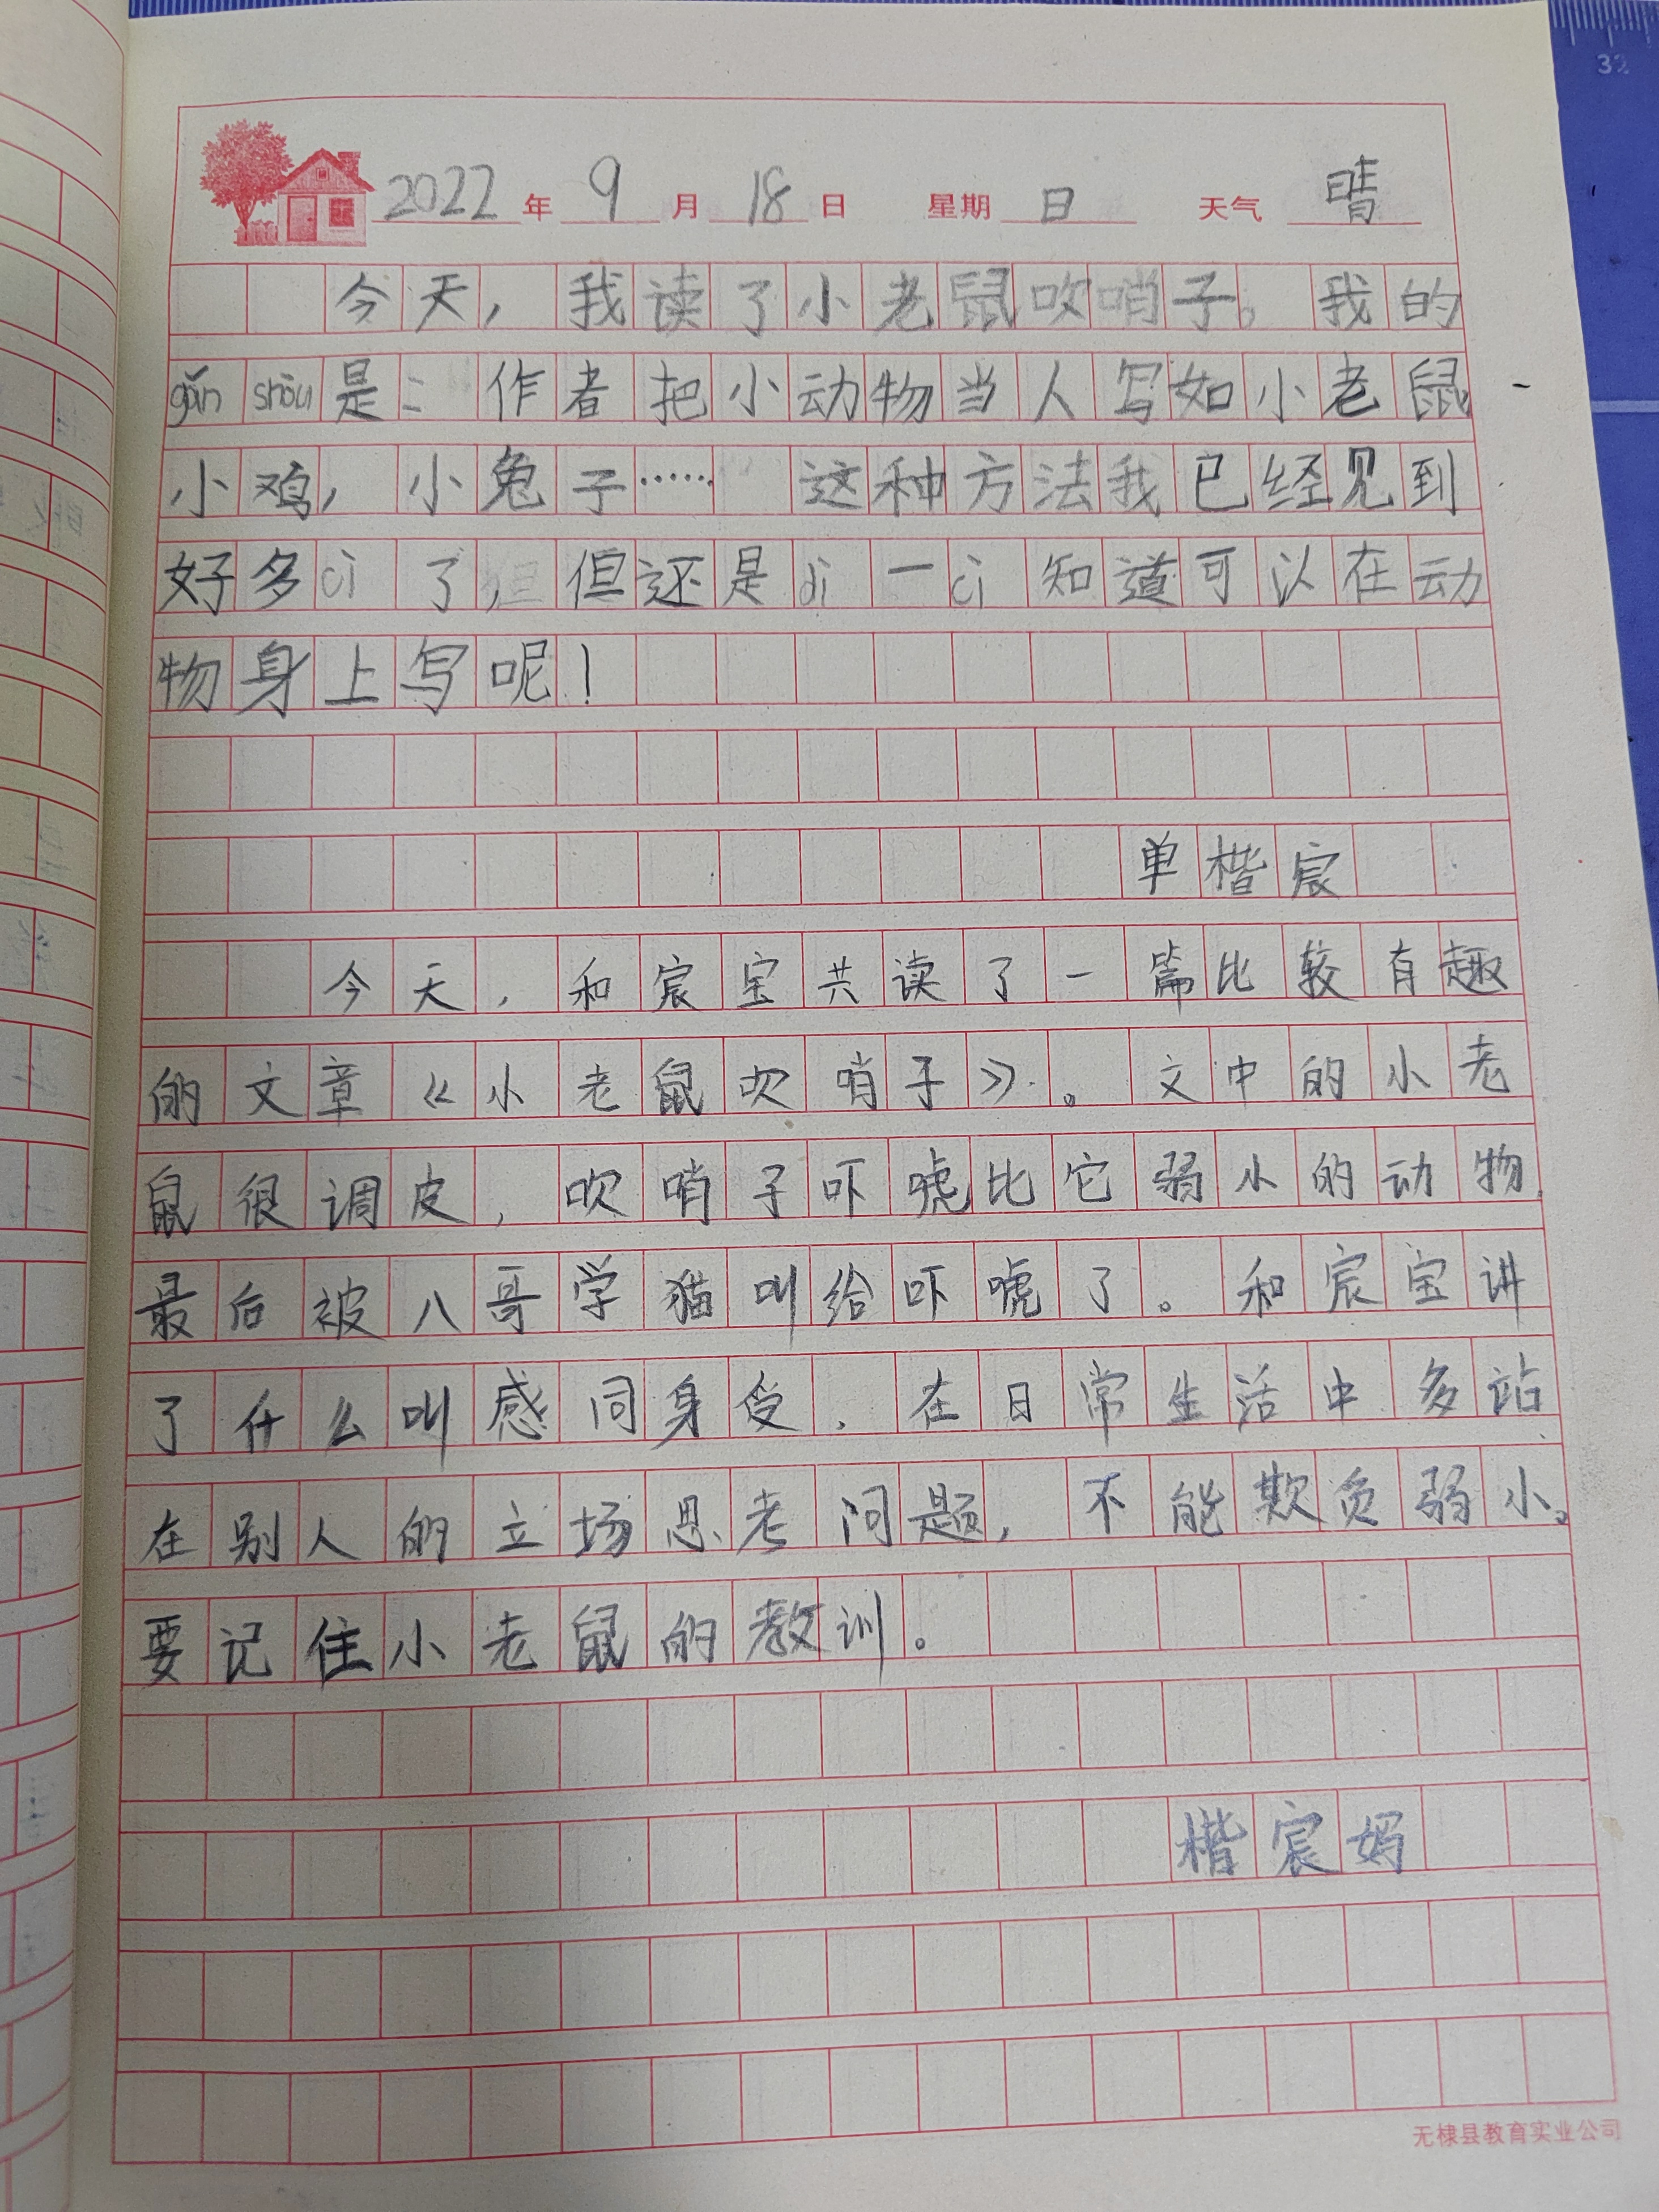 2022年9月18日 星期日 天气晴
今天，我读了小老鼠吹哨子。我的
gǎn shòu是：作者把小动物当人写如小老鼠
小鸡，小兔子…… 这种方法我已经见到
好多cì了，但还是dì一cì知道可以在动
物身上写呢！
单楷宸
今天，和宸宝共读了一篇比较有趣
的文章《小老鼠吹哨子》。文中的小老
鼠很调皮，吹哨子吓唬比它弱小的动物，
最后被八哥学猫叫给吓唬了。和宸宝讲
了什么叫感同身受，在日常生活中多站
在别人的立场思考问题，不能欺负弱小。
要记住小老鼠的教训。
楷宸妈
无棣县教育实业公司
32